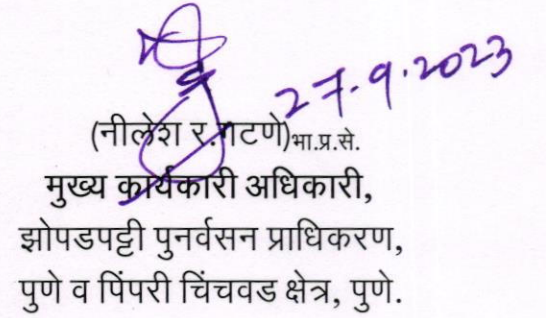 27.9.2023
(नीलेश र.गटणे)भा.प्र.से.
मुख्य कार्यकारी अधिकारी,
झोपडपट्टी पुनर्वसन प्राधिकरण,
पुणे व पिंपरी चिंचवड क्षेत्र, पुणे.